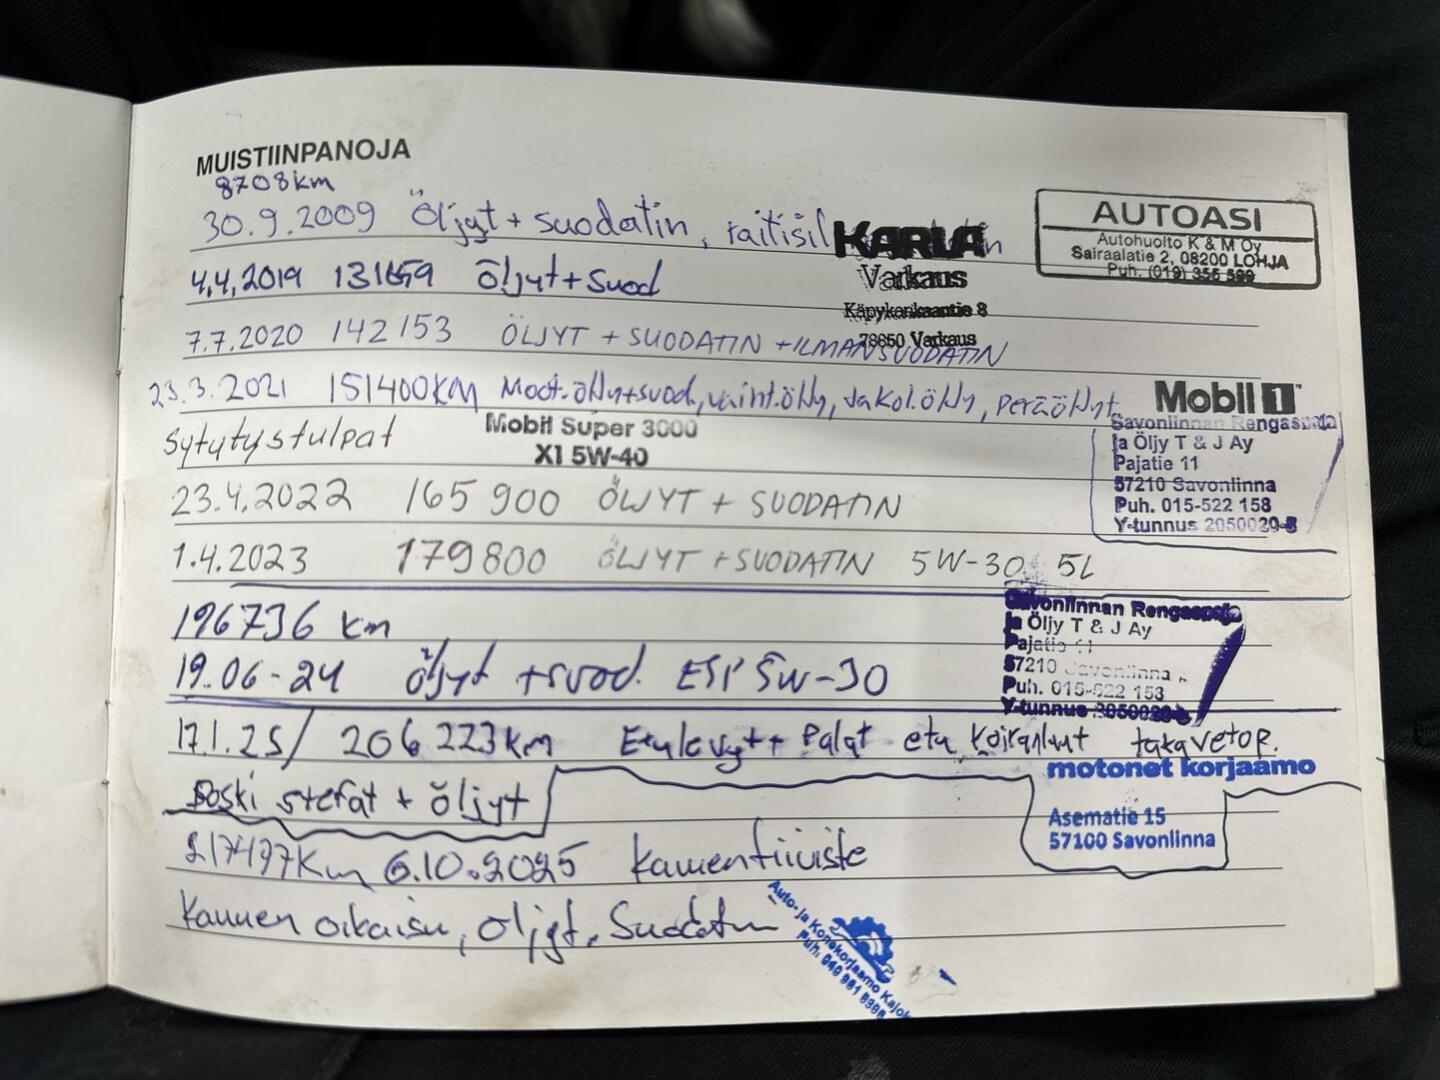 MUISTIINPANOJA
8708km
30.9.2009 Öljyt + suodatin, raitisil
KARLA
Varkaus
Käpykankaantie 8
78850 Varkaus
AUTOASI
Autohuolto K & M Oy
Sairaalatie 2, 08200 LOHJA
Puh. (019) 356 599
4.4.2019 131659 öljyt+Suod
7.7.2020 142153 ÖLJYT + SUODATIN + ILMANSUODATIN
23.3.2021 151400KM Moot.öljy+suod, vaiht.öljy, Jakol.öljy, peräöljyt
Mobil 1
Sytytystulpat
Mobil Super 3000
X1 5W-40
Savonlinnan Rengaspaja
ja Öljy T & J Ay
Pajatie 11
57210 Savonlinna
Puh. 015-522 158
Y-tunnus 2050029-8
23.4.2022 165 900 ÖLJYT + SUODATIN
1.4.2023 179800 ÖLJYT + SUODATIN 5W-30 5L
196736 km
Savonlinnan Rengaspaja
ja Öljy T & J Ay
Pajatie 11
57210 Savonlinna
Puh. 015-522 158
Y-tunnus 2050029-8
19.06-24 öljyt +suod. ESP 5W-30
17.1.25/ 206 223km Etulevyt + Palat etu Koiranluut takavetop.
motonet korjaamo
Asematie 15
57100 Savonlinna
Poski stefat + öljyt
217497Km 6.10.2025 Kannentiiviste
Kannen oikaisu, öljyt, Suodatin
Auto- ja Konekorjaamo
Puh. 040 981